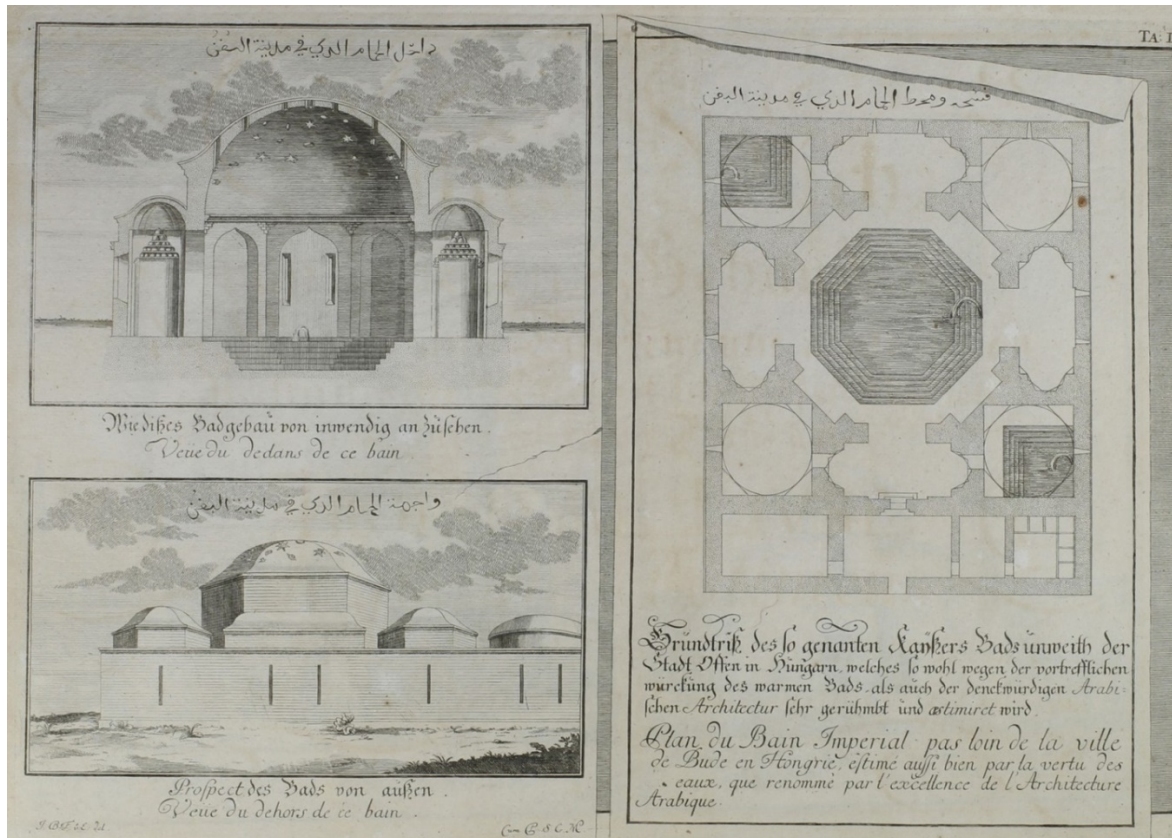 داخل الحمام الذي في مدينة البفن
Wie dißes Badgebaü von inwendig an züsehen.
Veüe du dedans de ce bain
واجهة الحمام الذي في مدينة البفن
Prospect des Bads von außen.
Veüe du dehors de ce bain.
TA: I
الحمام الذي في مدينة البفن
Gründtriß des so genanten Kaÿßers Bads ünweith der
Stadt Offen in Hüngarn, welches so wohl wegen der vortrefflichen
würckung des warmen Bads, als auch der denckwürdigen Arabi-
schen Architectur sehr gerühmbt ünd æstimiret wird.
Plan du Bain Imperial pas loin de la ville
de Bude en Hongrie, éstimé aussi bien par la vertu des
eaux, que renommé par l'excellence de l'Architecture
Arabique.